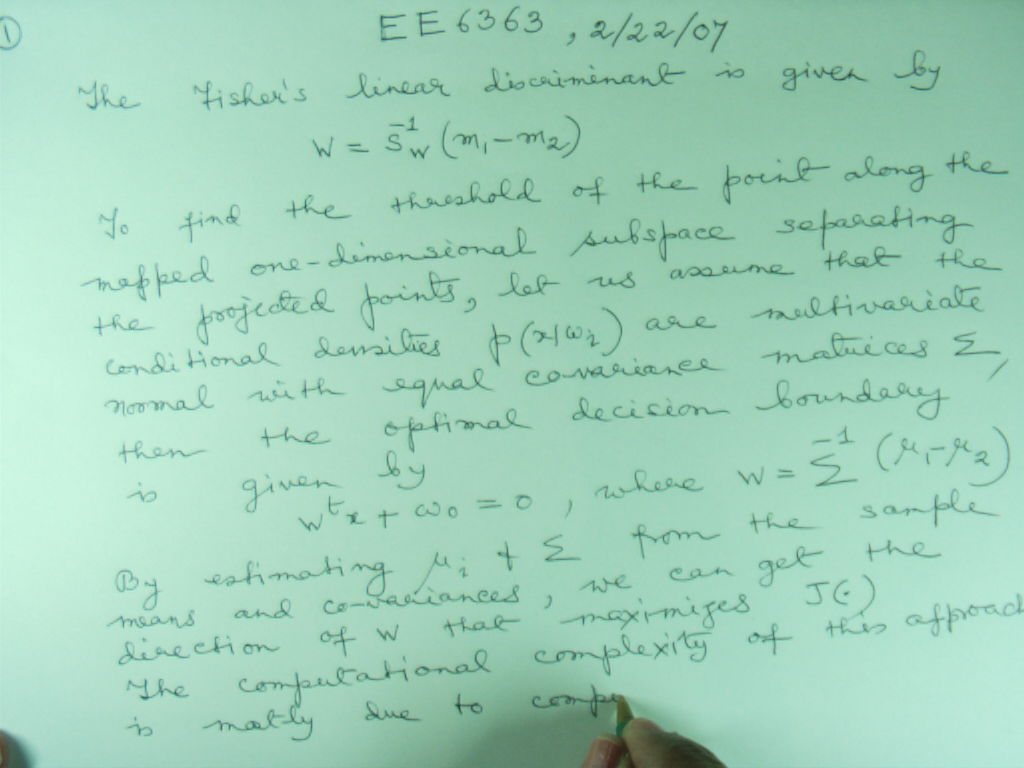 1
EE 6363, 2/22/07
The Fisher's linear discriminant is given by
W = S_W^{-1} (m₁ - m₂)
To find the threshold of the point along the
mapped one-dimensional subspace separating
the projected points, let us assume that the
conditional densities p(x|ωᵢ) are multivariate
normal with equal co-variance matrices Σ,
then the optimal decision boundary
is given by
wᵗx + ω₀ = 0, where W = Σ^{-1} (μ₁-μ₂)
By estimating μᵢ & Σ from the sample
means and co-variances, we can get the
direction of W that maximizes J(·)
The computational complexity of this approach
is mostly due to compu